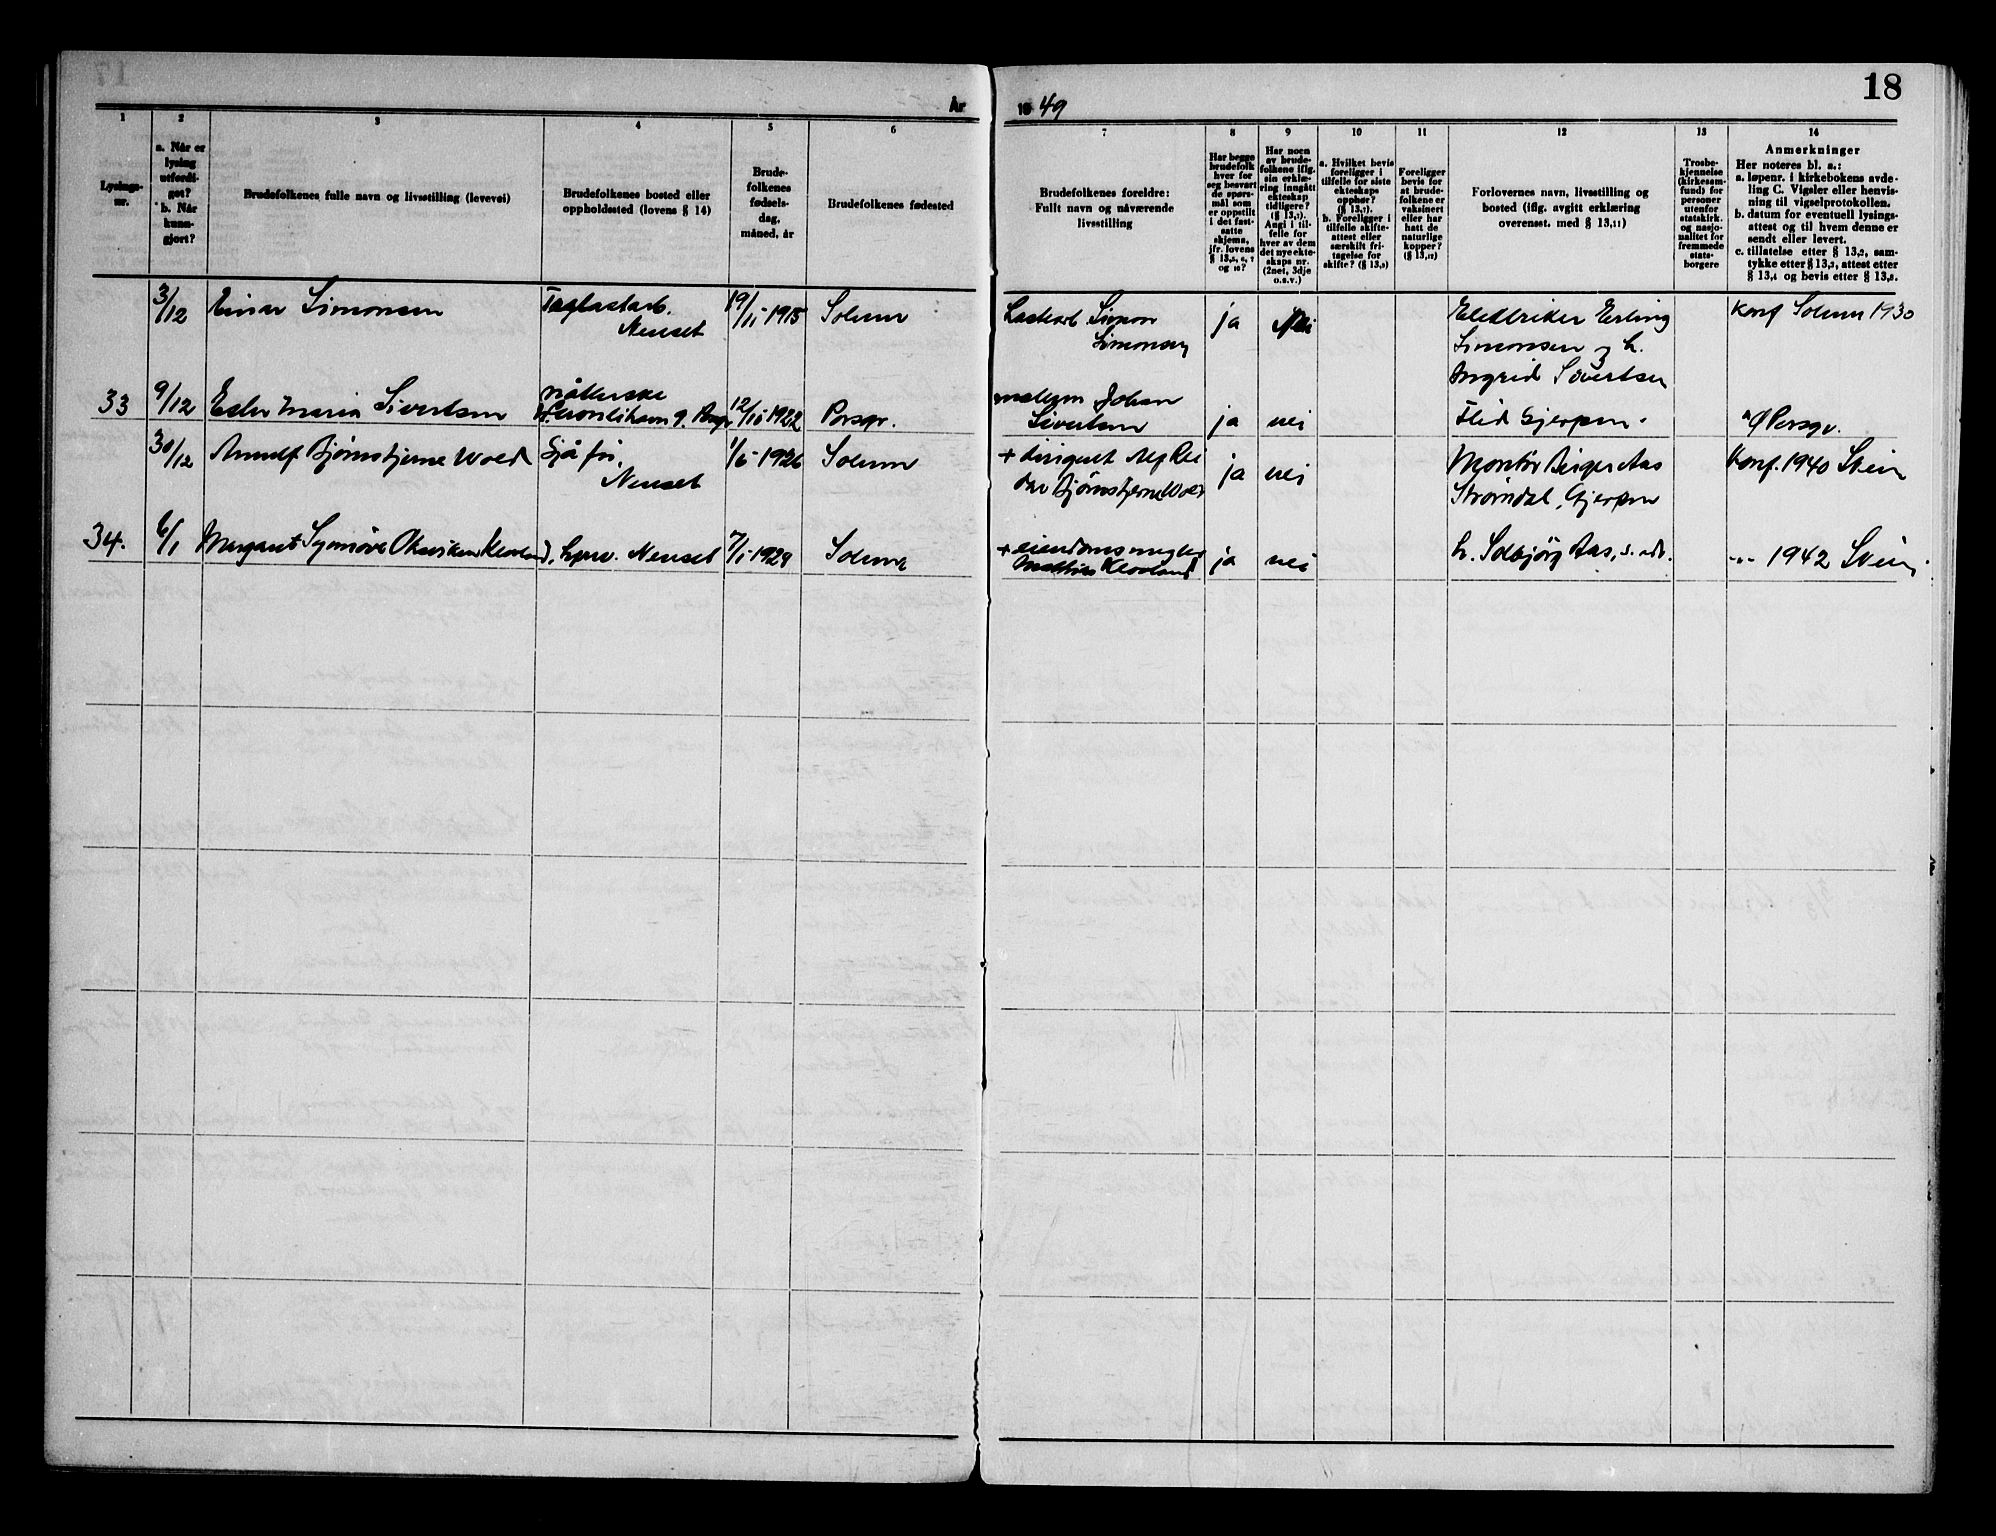 18
År
19 49
1
2
3
4
5
6
7
8
9
10
11
12
13
14
Lysings-
nr.
a. Når er
lysing
utferdi-
get?
b. Når
kunn-
gjort?
Brudefolkenes fulle navn og livsstilling (lovevei)
Brudefolkenes bosted eller
oppholdssted (lovens § 14)
Brude-
folkenes
fødsels-
dag,
måned, år
Brudefolkenes fødested
Brudefolkenes foreldre:
Fullt navn og nåværende
livsstilling
Har begge
brudefolk
hver for
seg besvart
de spørs-
mål som
er oppstilt
i det fast-
satte
skjema,
jfr. lovens
§ 13,5, 6, 7
og 10?
Har noen
av brude-
folkene iflg.
sin erklæ-
ring inngått
ekteskap
tidligere?
(§ 13,7).
Angi i til-
felle for
hver av dem
det nye ekte-
skaps nr.
(2net, 3dje
o.s.v.)
a. Hvilket bevis
foreligger i
tilfelle for siste
ekteskaps
opphør?
(§ 13,7).
b. Foreligger i
tilfelle skifte-
attest eller
særskilt fri-
tagelse for
skifte? (§ 13,8)
Foreligger
bevis for
at brude-
folkene er
vaksinert
eller har
hatt de
naturlige
kopper?
(§ 13,12)
Forlovernes navn, livsstilling og
bosted (iflg. avgitt erklæring
overenst. med § 13,11)
Trosbe-
kjennelse
(kirkesam-
fund) for
personer
utenfor
statskirk.
og nasjo-
nalitet for
fremmede
stats-
borgere
Anmerkninger
Her noteres bl. a.:
a. løpenr. i kirkebokens avde-
ling C. Vigsler eller henvis-
ning til vigselprotokollen.
b. datum for eventuell lysings-
attest og til hvem denne er
sendt eller levert.
c. tillatelse etter § 13,2, sam-
tykke etter § 13,3, attest etter
§ 13,4 og bevis etter § 13,8.
3/12 Einar Simonsen
Neuset
19/11 1915 Solum
Simon
Simonsen
ja
nei
Elektriker Erling
Simonsen og h.
Ingrid Sivertsen
Konf Solum 1930
33 9/12 Ester Maria Sivertsen
12/10 1922 Porsgr.
Johan
Sivertsen
ja nei
Flid Gjerpen.
Ø Porsgr.
30/12 Arnulf Bjørnstjerne Wold
Neuset
1/5 1926 Solum
+ dirigent Alf Rei
dar Bjørnstjerne Wold
ja nei
Montør Birger Aas
Strømdal, Gjerpen
Konf. 1940 Skien
34. 6/1 Margaret Synnøve Oksviken Klovland, hjv. Neuset
7/1 1929 Solum
+ eiendomsmegler
Mathias Klovland
ja nei
h. Solbjørg Aas, s. sds.
-"- 1942 Skien